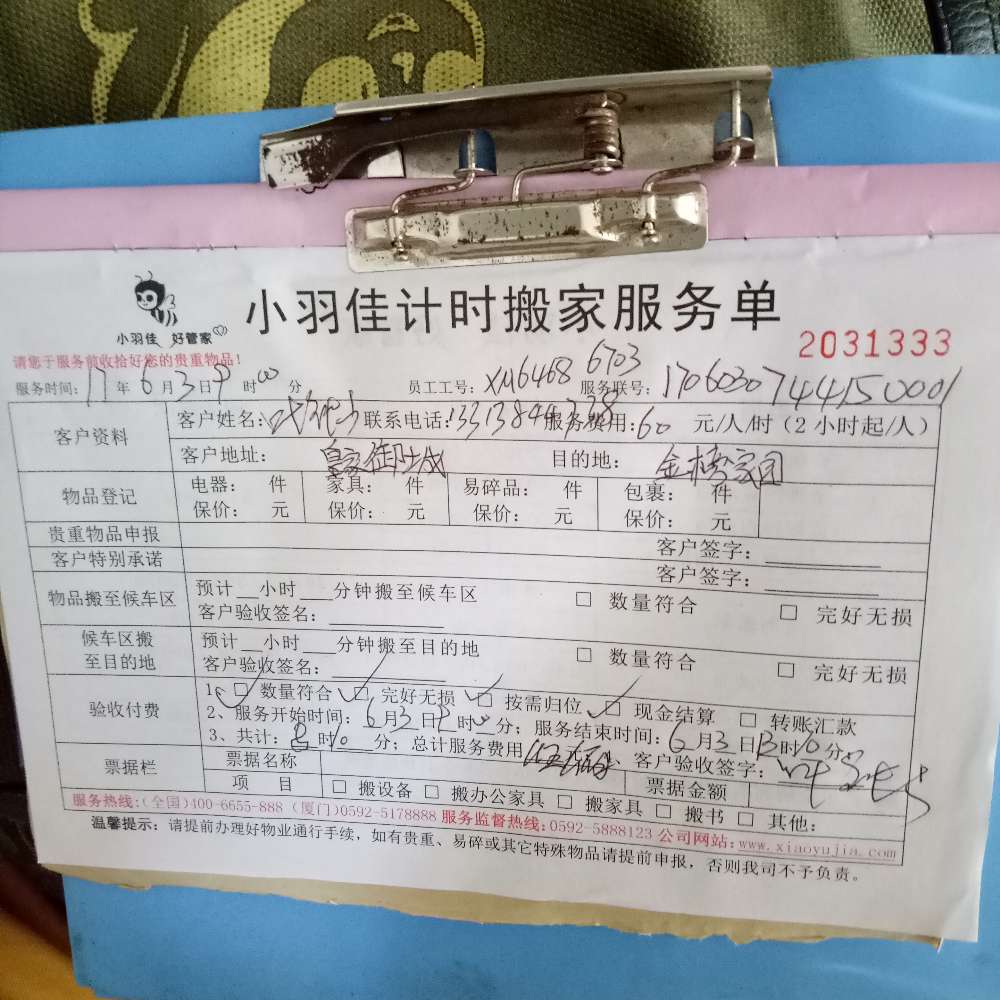 小羽佳 好管家
小羽佳计时搬家服务单
2031333
请您于服务前收拾好您的贵重物品！
服务时间：17年6月3日 时00分 员工工号：XM6468 6703 服务联号：17060307444150001
客户资料 客户姓名： 联系电话： 服务费用：60 元/人/时（2小时起/人）
客户地址：皇家御 目的地：金 家园
物品登记 电器： 件 家具： 件 易碎品： 件 包裹： 件
保价： 元 保价： 元 保价： 元 保价： 元
贵重物品申报 客户签字：
客户特别承诺 客户签字：
物品搬至候车区 预计__小时___分钟搬至候车区 □ 数量符合 □ 完好无损
客户验收签名：
候车区搬至目的地 预计__小时___分钟搬至目的地 □ 数量符合 □ 完好无损
客户验收签名：
验收付费 1、□ 数量符合 □ 完好无损 □ 按需归位 □ 现金结算 □ 转账汇款
2、服务开始时间：6月3日 时 分；服务结束时间：6月3日13时10分。
3、共计： 时10分；总计服务费用 元、客户验收签字：
票据栏 票据名称 票据金额
项 目 □ 搬设备 □ 搬办公家具 □ 搬家具 □ 搬书 □ 其他：
服务热线：(全国)400-6655-888 (厦门)0592-5178888 服务监督热线：0592-5888123 公司网站：www.xiaoyujia.com
温馨提示：请提前办理好物业通行手续，如有贵重、易碎或其它特殊物品请提前申报，否则我司不予负责。